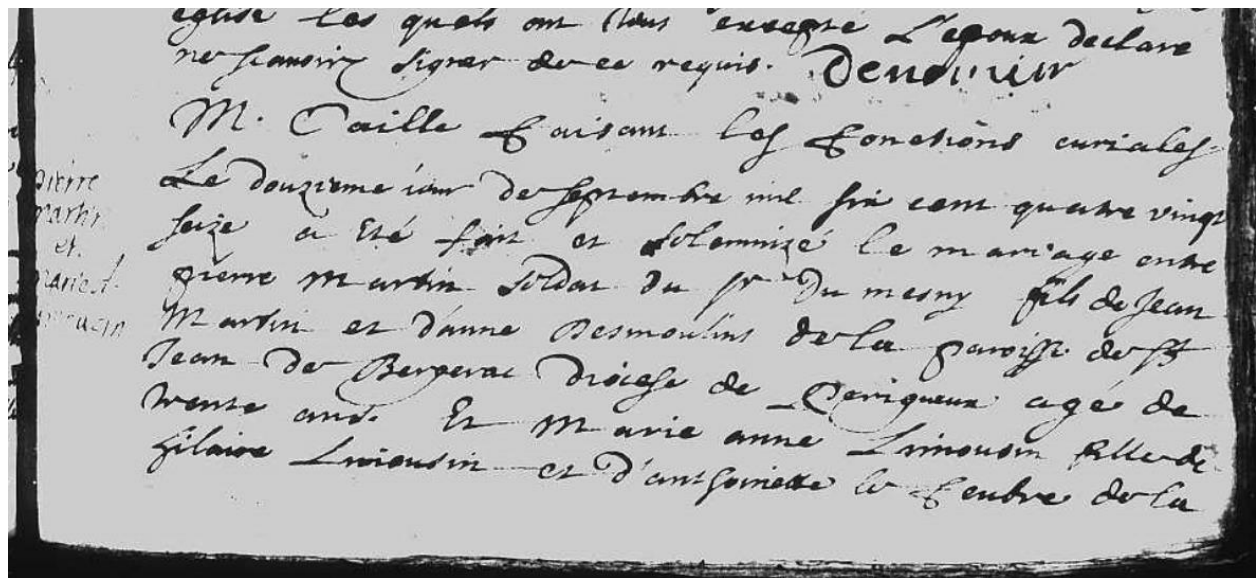 église les quels ont tous excepté L'epoux declare
ne scauoir signer de ce requis.
M. Caille faisant les fonctions curiales.
Le douzieme iour de septembre mil six cent quatre vingt
seize a été fait et solemnizé le mariage entre
pierre martin soldat du sr Du mesny fils de Jean
Martin et d'anne Desmoulins de la paroisse de st
Jean de Bergerac Diocese de Perigueux agé de
trente ans. Et Marie anne Limousin fille de
hilaire Limousin et d'anthoinette le febure de la
pierre
martin
et
marie A.